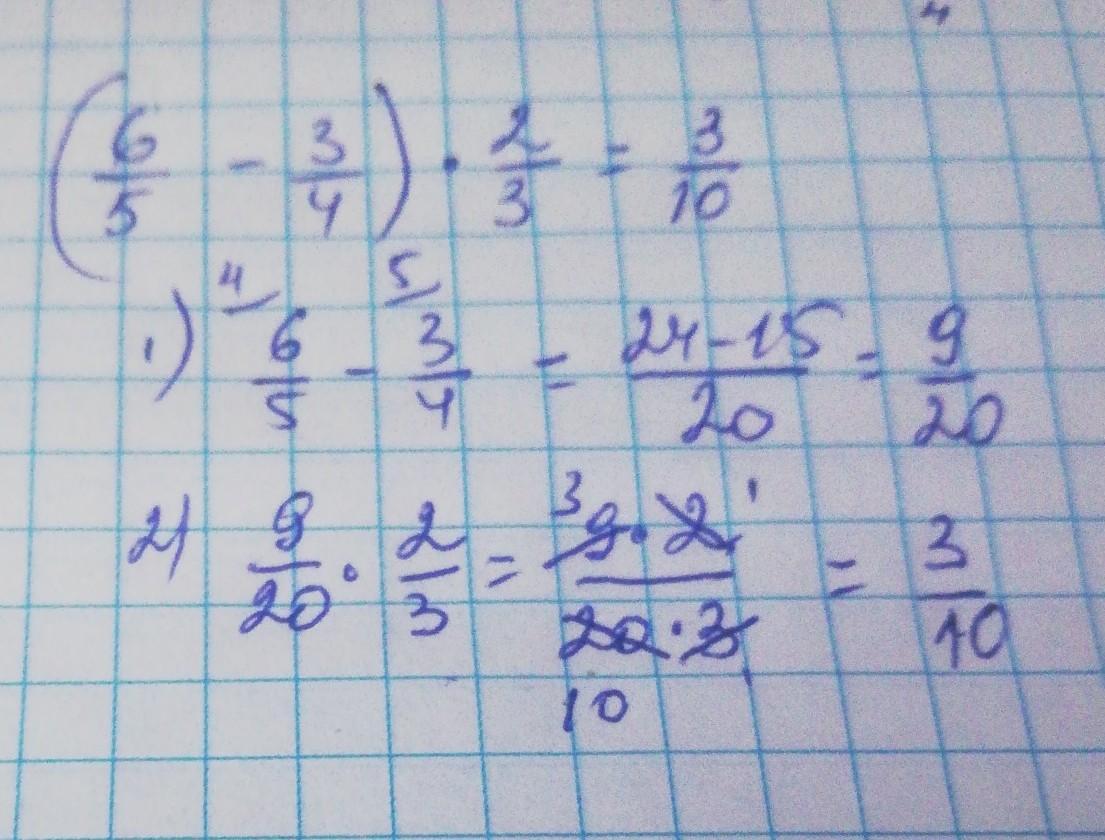 (6/5 - 3/4) · 2/3 = 3/10
1) ⁴/ 6/5 - ⁵/ 3/4 = 24-15/20 = 9/20
2) 9/20 · 2/3 = ³9·2¹/20·3 = 3/10
10 1